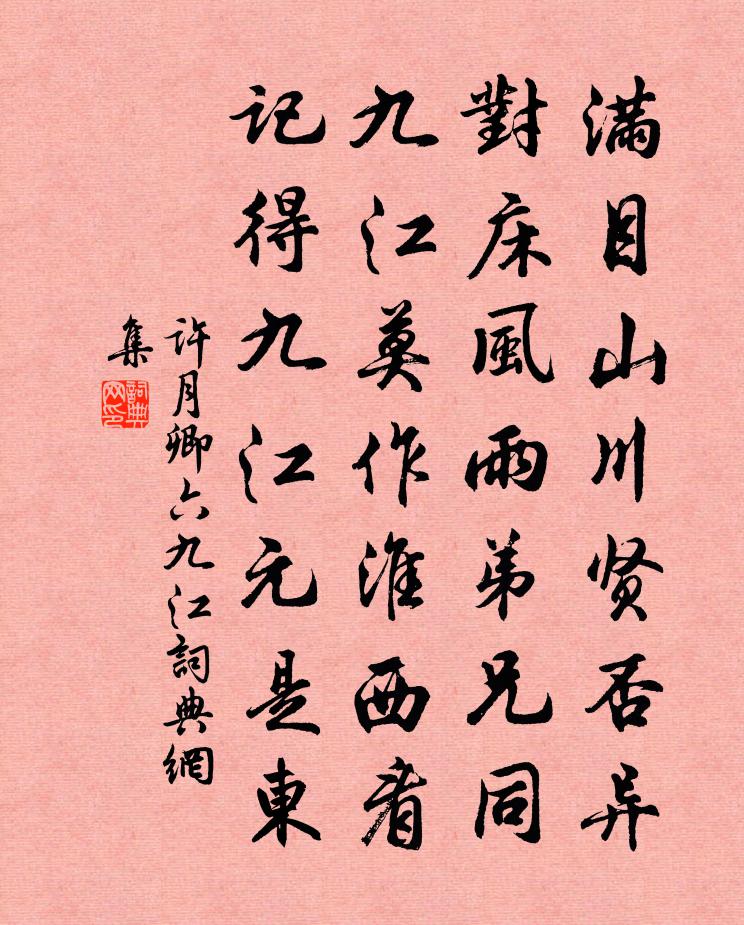 满目山川贤否异
對床風雨弟兄同
九江莫作淮西看
记得九江元是東
许月卿六九江詞典網
集
詞典網印